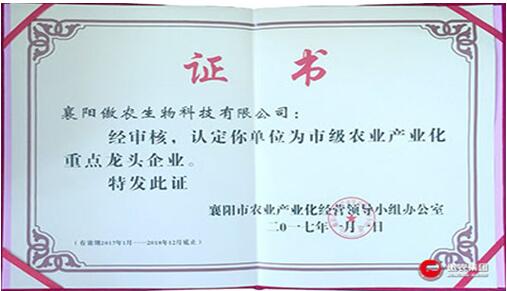 证 书
襄阳傲农生物科技有限公司：
经审核，认定你单位为市级农业产业化
重点龙头企业。
特发此证
襄阳市农业产业化经营领导小组办公室
二〇一七年一月一日
（有效期2017年1月——2018年12月底止）
傲农集团